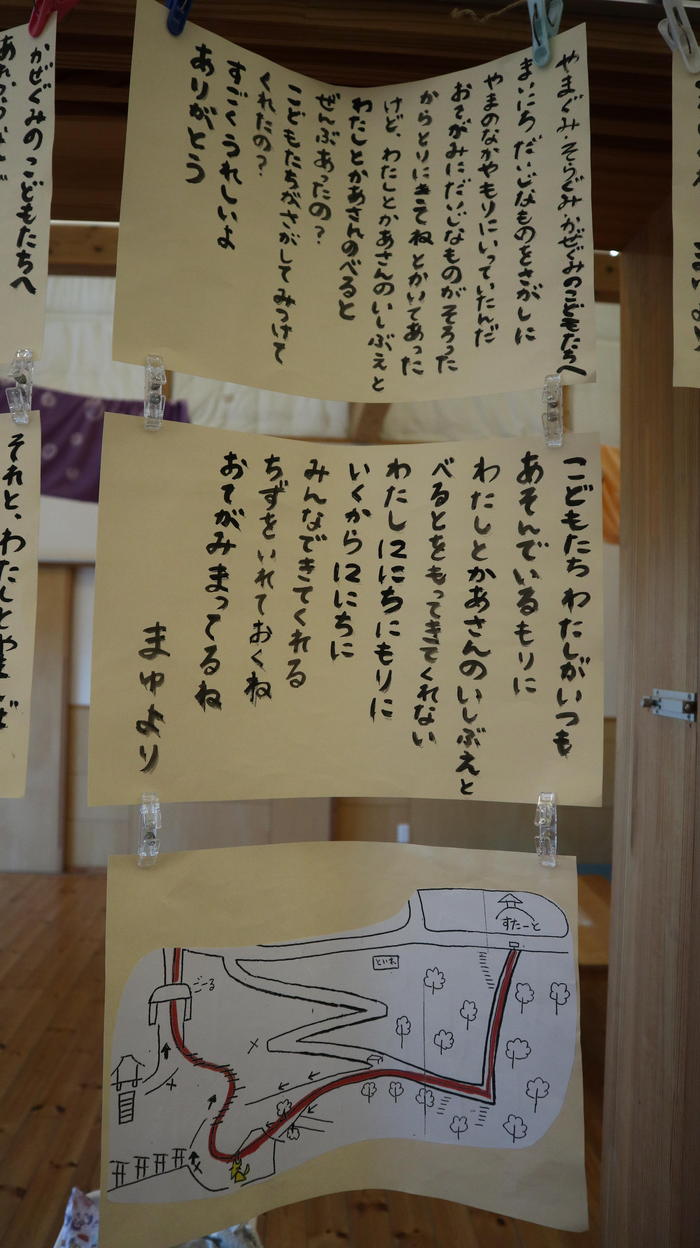 やまぐみ・そらぐみ・かぜぐみのこどもたちへ
まいにちだいじなものをさがしに
やまのなかやもりにいっていたんだ
おてがみにだいじなものがそろった
からとりにきてねとかいてあった
けど、わたしとかあさんのいしぶえと
わたしとかあさんのべると
ぜんぶあったの？
こどもたちがさがしてみつけて
くれたの？
すごくうれしいよ
ありがとう
かぜぐみのこどもたちへ
こどもたちわたしがいつも
あそんでいるもりに
わたしとかあさんのいしぶえと
べるとをもってきてくれない
わたし12にちにもりに
いくから12にちに
みんなできてくれる
ちずをいれておくね
おてがみまってるね
まゆより
それと、わたしとやま
すたーと
といれ
ごーる